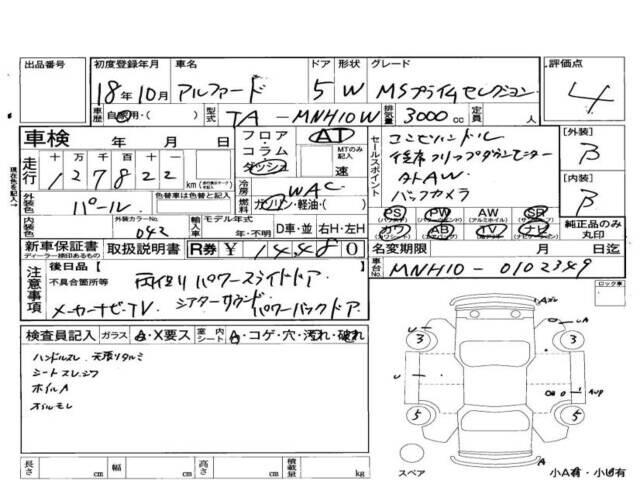 出品番号 初度登録年月 車名 ドア 形状 グレード 評価点
18年10月 アルファード 5 W MSプライムセレクション 4
車歴 自家用・( ) 型式 TA-MNH10W 排気量 3000cc 定員 人
車検 年 月 日 フロア・コラム・ダッシュ AT MTのみ記入 速
走行 十万千百十一 127822 km
セールスポイント
コンビハンドル
後席フリップダウンモニター
外AW
バックカメラ
[外装] B
[内装] B
冷房 WAC
外装色 パール 色替車は色替と記入 燃料 ガソリン・軽油・( )
PS PW AW SR
カワ AB TV ナビ
純正品のみ丸印
内装色 外装カラーNo. 042 輸入車 モデル年式 年・不明 D車・並 右H・左H
新車保証書 ディーラー様印あるもの 取扱説明書 R券 ¥ 14480
名変期限 月 日迄
車台No. MNH10-0102349
ロック車
注意事項 後日品【 】
不具合箇所等 両側パワースライドドア
メーカーナビ・TV シアターサウンド パワーバックドア
検査員記入 ガラス A・X要ス 室内シート A・コゲ・穴・汚れ・破れ
ハンドルスレ 天張リタルミ
シートスレ.シワ
ホイルA
オイルモレ
3 3
5 5
U A
A
長さ cm 幅 cm 高さ cm 積載量 kg
スペア 小A有・小凹有
現在色を記入→